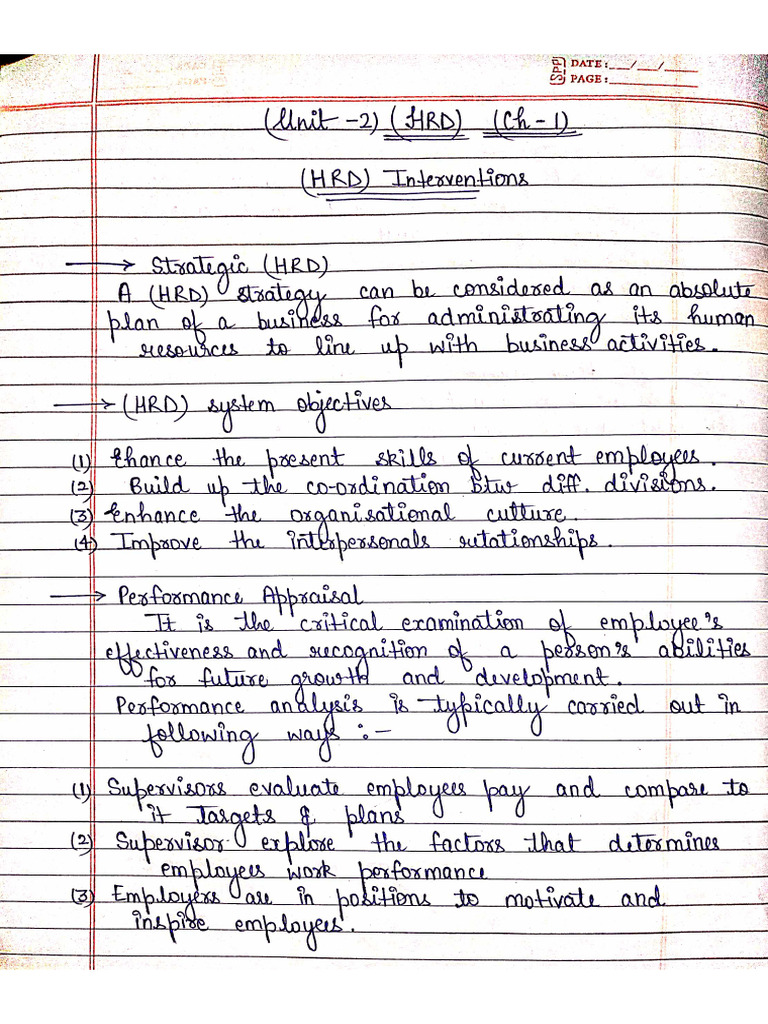 SPP DATE:___/___/____
PAGE:____________
(Unit -2) (HRD) (Ch-1)
(HRD) Interventions
→ Strategic (HRD)
A (HRD) strategy can be considered as an absolute
plan of a business for administrating its human
resources to line up with business activities.
→ (HRD) system objectives
(1) Ehance the present skills of current employees.
(2) Build up the co-ordination btw diff. divisions.
(3) Enhance the organisational culture.
(4) Improve the interpersonals rutationships.
→ Performance Appraisal
It is the critical examination of employee's
effectiveness and recognition of a person's abilities
for future growth and development.
Performance analysis is typically carried out in
following ways :-
(1) Supervisors evaluate employees pay and compare to
it targets & plans
(2) Supervisor explore the factors that determines
employees work performance
(3) Employers are in positions to motivate and
inspire employees.